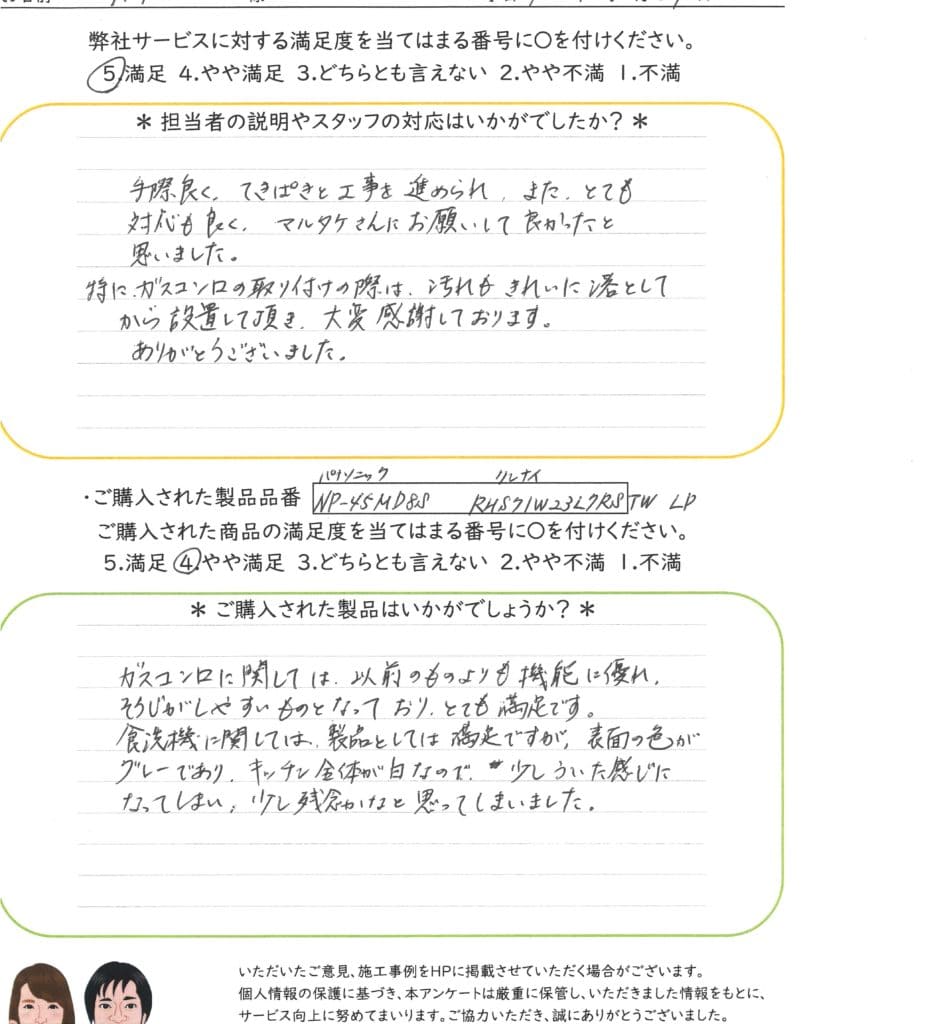 弊社サービスに対する満足度を当てはまる番号に〇を付けください。
5.満足 4.やや満足 3.どちらとも言えない 2.やや不満 1.不満
＊ 担当者の説明やスタッフの対応はいかがでしたか？ ＊
手際良く、てきぱきと工事を進められ、また、とても
対応も良く、マルタケさんにお願いして良かったと
思いました。
特に、ガスコンロの取り付けの際は、汚れもきれいに落として
から設置して頂き、大変感謝しております。
ありがとうございました。
パナソニック リンナイ
・ご購入された製品品番 NP-45MD8S RHS71W23L7RSTW LP
ご購入された商品の満足度を当てはまる番号に〇を付けください。
5.満足 4.やや満足 3.どちらとも言えない 2.やや不満 1.不満
＊ ご購入された製品はいかがでしょうか？ ＊
ガスコンロに関しては、以前のものよりも機能に優れ、
そうじがしやすいものとなっており、とても満足です。
食洗機に関しては、製品としては満足ですが、表面の色が
グレーであり、キッチン全体が白なので、少しういた感じに
なってしまい、少し残念かなと思ってしまいました。
いただいたご意見、施工事例をHPに掲載させていただく場合がございます。
個人情報の保護に基づき、本アンケートは厳重に保管し、いただきました情報をもとに、
サービス向上に努めてまいります。ご協力いただき、誠にありがとうございました。